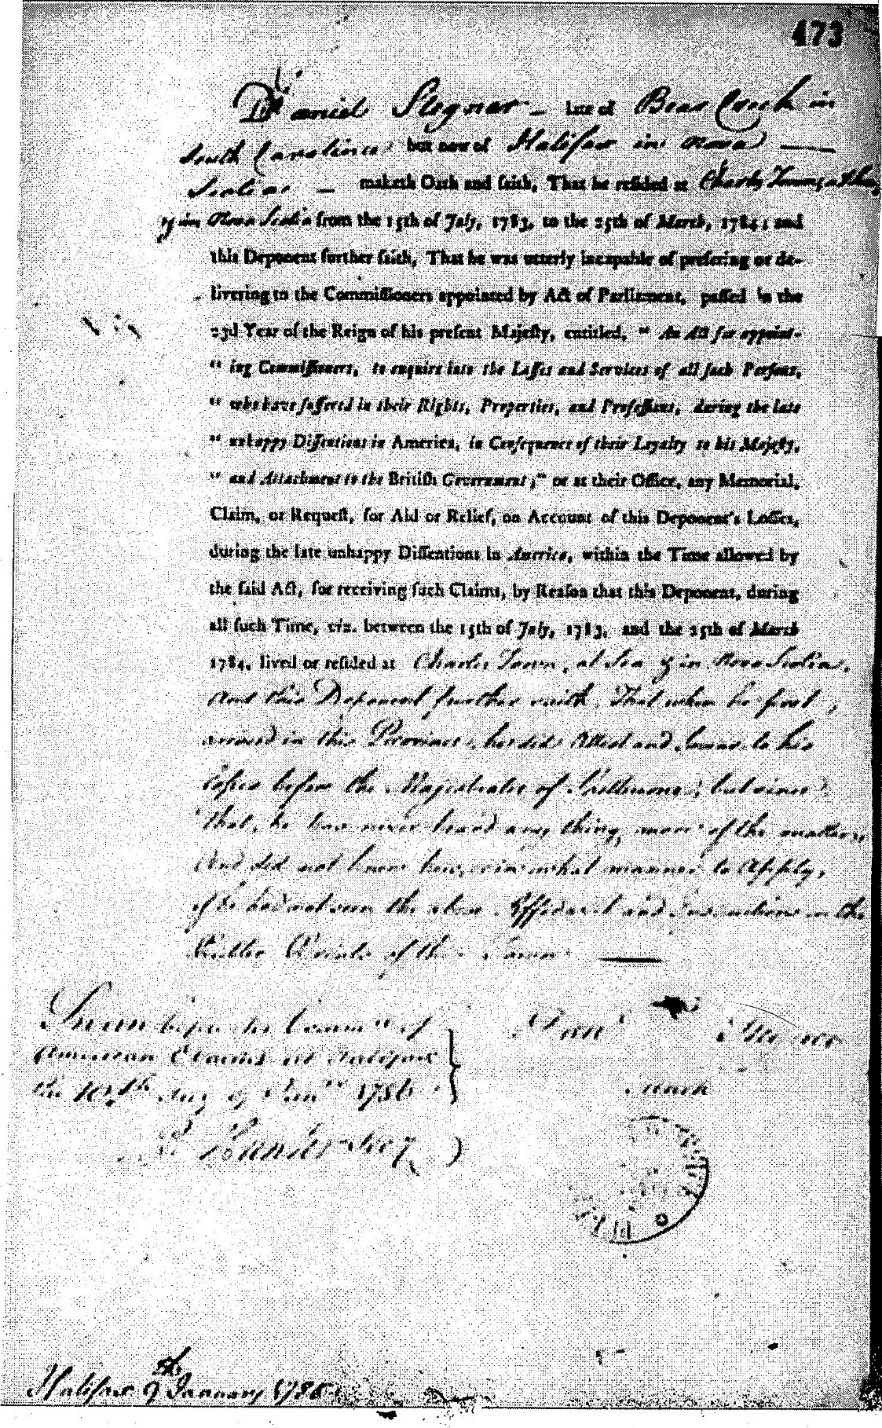 473
Daniel Stegner — late of Bear Creek in
South Carolina but now of Halifax in Nova —
Scotia — maketh Oath and saith, That he resided at Charles Town, at Sea,
& in Nova Scotia from the 15th of July, 1783, to the 25th of March, 1784; and
this Deponent further saith, That he was utterly incapable of prefering or de-
livering to the Commissioners appointed by Act of Parliament, passed in the
23d Year of the Reign of his present Majesty, entitled, " An Act for appoint-
" ing Commissioners, to enquire into the Losses and Services of all such Persons,
" who have suffered in their Rights, Properties, and Professions, during the late
" unhappy Dissentions in America, in Consequence of their Loyalty to his Majesty,
" and Attachment to the British Government," or at their Office, any Memorial,
Claim, or Request, for Aid or Relief, on Account of this Deponent's Losses,
during the late unhappy Dissentions in America, within the Time allowed by
the said Act, for receiving such Claims, by Reason that this Deponent, during
all such Time, viz. between the 15th of July, 1783, and the 25th of March
1784, lived or resided at Charles Town, at Sea & in Nova Scotia.
And this Deponent further saith, That when he first
arrived in this Province, he did Attest and Swear to his
Losses before the Magistrates of Shelburne; but since
that, he has never heard any thing more of the matter,
And did not know how, or in what manner to Apply,
if he had not seen the above Affidavit and Instructions in the
Public Prints of the Town —
Sworn before the Comm of
American Claims at Halifax
the 10th day of Jany 1786
Danl Stegner
mark
Halifax 9th January 1786